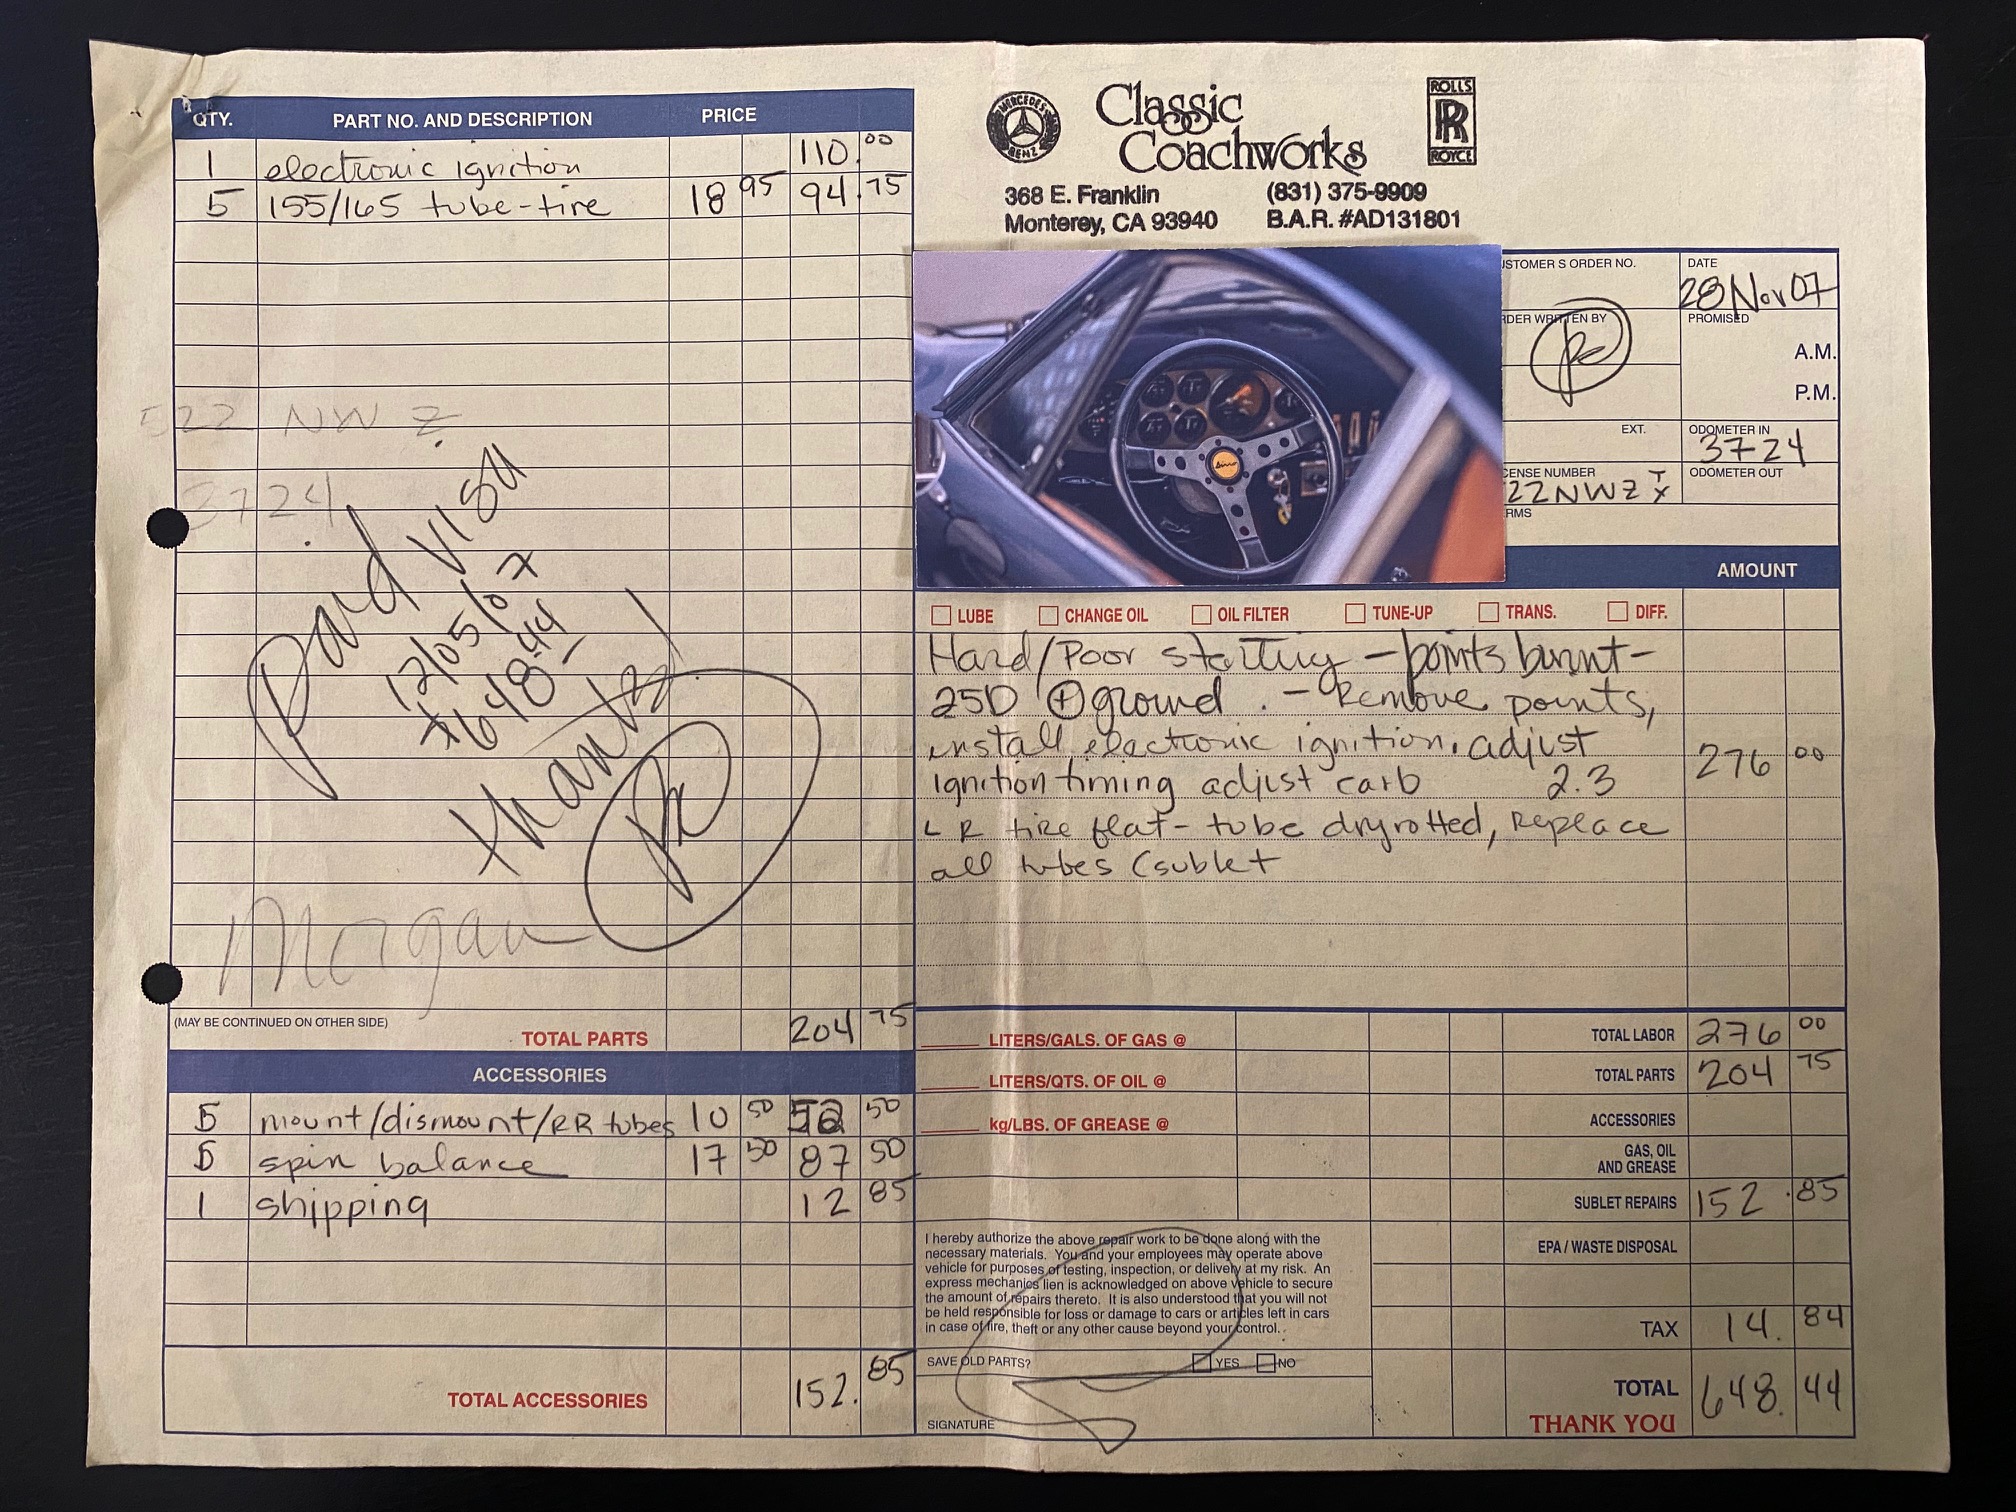 QTY. PART NO. AND DESCRIPTION PRICE
1 electronic ignition 110.00
5 155/165 tube-tire 18 95 94.75
522 NWZ
3724
Paid VISA
12/05/07
648.44
thanks!
Morgan
(MAY BE CONTINUED ON OTHER SIDE)
TOTAL PARTS 204 75
ACCESSORIES
5 mount/dismount/RR tubes 10 50 52 50
5 spin balance 17 50 87 50
1 shipping 12 85
TOTAL ACCESSORIES 152.85
MERCEDES
BENZ
Classic
Coachworks
ROLLS
RR
ROYCE
368 E. Franklin (831) 375-9909
Monterey, CA 93940 B.A.R. #AD131801
STOMER S ORDER NO.
DATE
28 Nov 07
RDER WRITTEN BY
PROMISED
A.M.
P.M.
EXT.
ODOMETER IN
3724
CENSE NUMBER
22NWZ TX
ODOMETER OUT
RMS
Dino
AMOUNT
LUBE CHANGE OIL OIL FILTER TUNE-UP TRANS. DIFF.
Hard/Poor starting - points burnt -
25D + ground. - Remove points,
install electronic ignition. adjust
ignition timing adjust carb 2.3 276 00
LR tire flat - tube dryrotted, replace
all tubes (sublet
LITERS/GALS. OF GAS @
LITERS/QTS. OF OIL @
kg/LBS. OF GREASE @
TOTAL LABOR 276 00
TOTAL PARTS 204 75
ACCESSORIES
GAS, OIL
AND GREASE
SUBLET REPAIRS 152.85
EPA / WASTE DISPOSAL
TAX 14.84
TOTAL 648.44
THANK YOU
I hereby authorize the above repair work to be done along with the
necessary materials. You and your employees may operate above
vehicle for purposes of testing, inspection, or delivery at my risk. An
express mechanics lien is acknowledged on above vehicle to secure
the amount of repairs thereto. It is also understood that you will not
be held responsible for loss or damage to cars or articles left in cars
in case of fire, theft or any other cause beyond your control.
SAVE OLD PARTS? YES NO
SIGNATURE